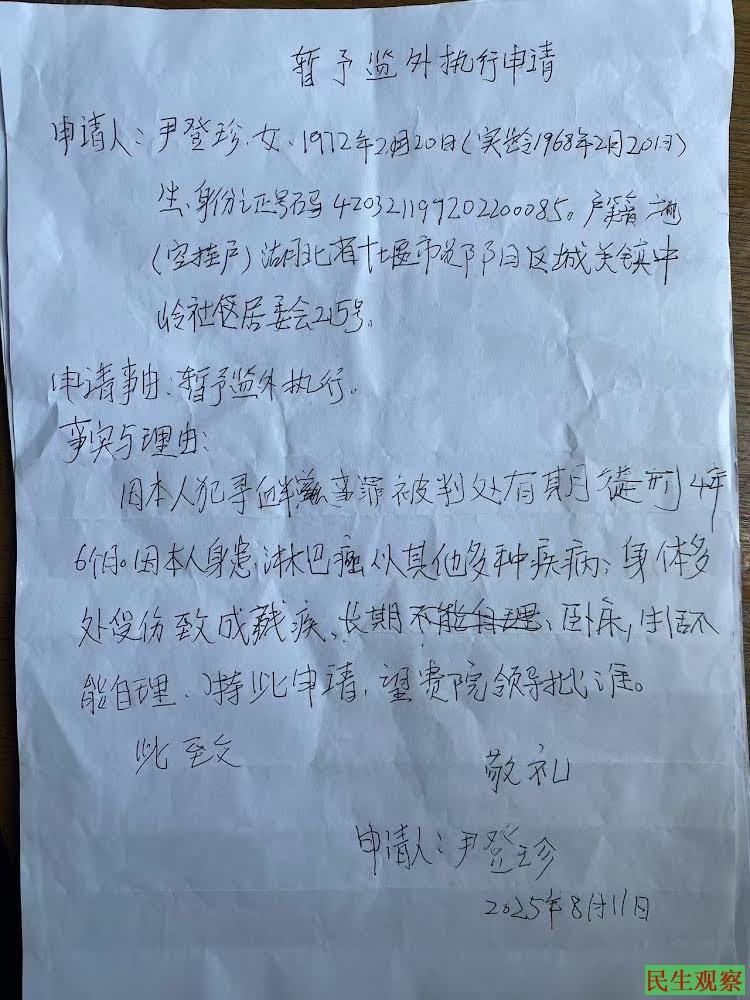 暂予监外执行申请
申请人：尹登珍、女、1972年2月20日（实龄1968年2月20日）
生、身份证号码420321197202200085。户籍地
（空挂户）湖北省十堰市郧阳区城关镇中
岭社区居委会215号。
申请事由：暂予监外执行。
事实与理由：
因本人犯寻衅滋事罪被判处有期徒刑4年
6个月。因本人身患淋巴瘤以其他多种疾病；身体多
处受伤致成残疾、长期不能自理、卧床，生活不
能自理、特此申请，望贵院领导批准。
此致
敬礼
申请人：尹登珍
2025年8月11日
民生观察